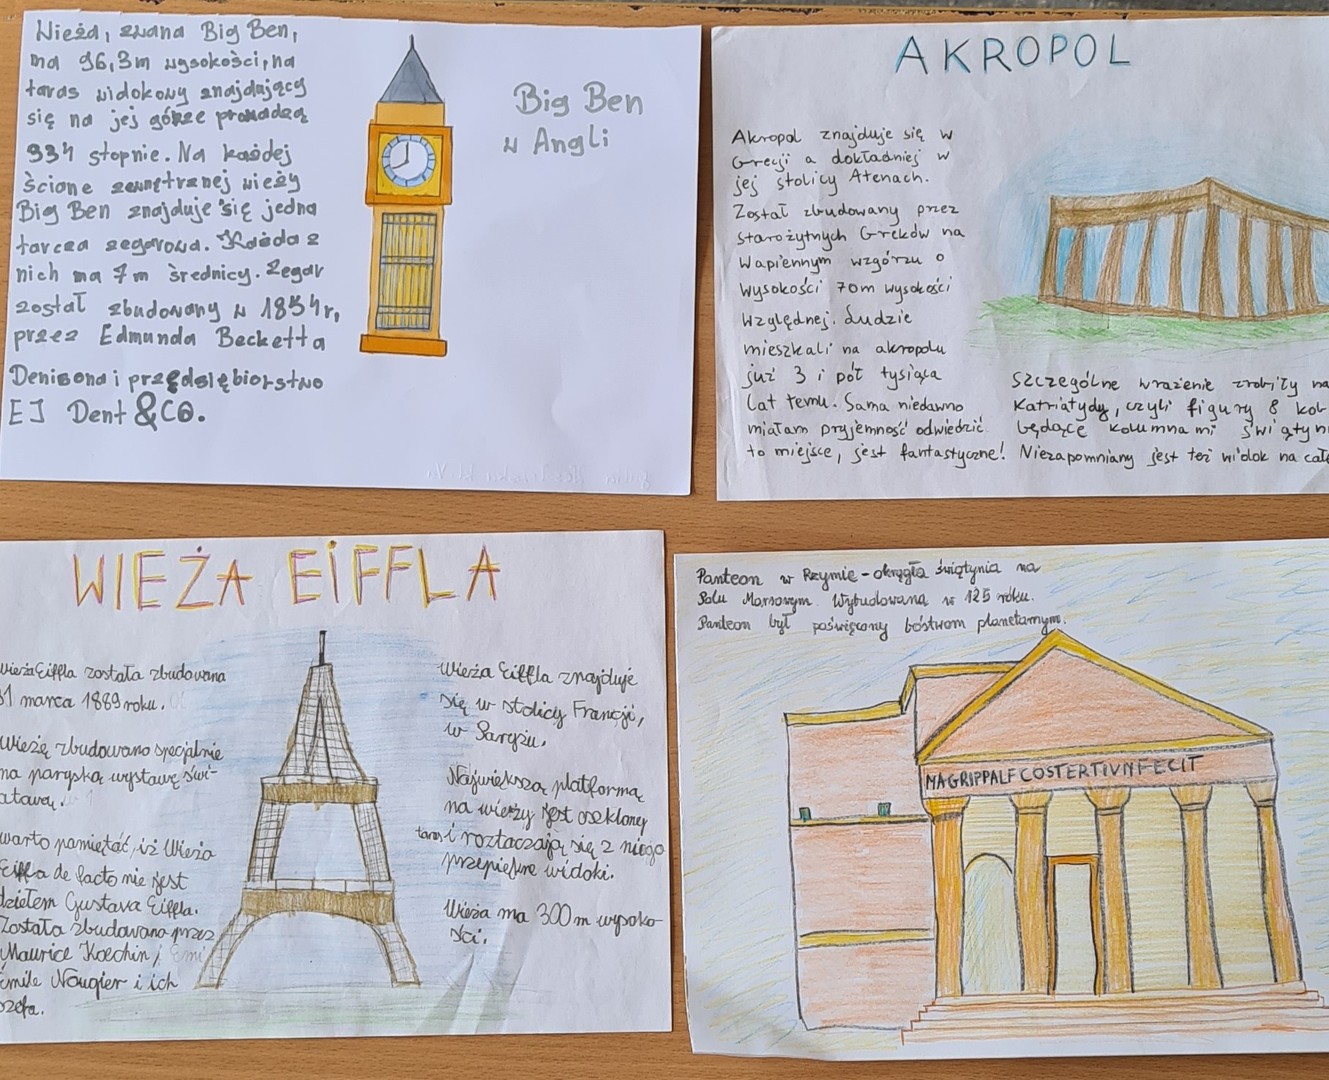 Wieża, zwana Big Ben,
ma 96,3m wysokości, na
taras widokowy znajdujący
się na jej górze prowadzą
334 stopnie. Na każdej
ścione zewnętrznej wieży
Big Ben znajduje się jedna
tarcza zegarowa. Każda z
nich ma 7m średnicy. Zegar
został zbudowany w 1854r,
przez Edmunda Becketta
Denisona i przedsiębiorstwo
EJ Dent &CO.
Big Ben
w Angli
AKROPOL
Akropol znajduje się w
Grecji a dokładniej w
jej stolicy Atenach.
Został zbudowany przez
starożytnych Greków na
Wapiennym wzgórzu o
wysokości 70m wysokości
względnej. Ludzie
mieszkali na akropolu
już 3 i pół tysiąca
lat temu. Sama niedawno
miałam przyjemność odwiedzić
to miejsce, jest fantastyczne!
Szczególne wrażenie zrobiły na
Katriatydy, czyli figury 8 kob
będące kolumnami świątyn
Niezapomniany jest też widok na całe
WIEŻA EIFFLA
Wieża Eiffla została zbudowana
31 marca 1889 roku.
Wieżę zbudowano specjalnie
na paryską wystawę świ-
atową.
warto pamiętać, iż Wieża
Eiffla de facto nie jest
dziełem Gustava Eiffla.
Została zbudowana przez
Maurice Koechin,
Émile Nougier i ich
szefa.
Wieża Eiffla znajduje
się w stolicy Francji,
w Paryżu.
Największą platformą
na wieży jest oszklony
taras i roztaczają się z niego
przepiękne widoki.
Wieża ma 300m wysoko-
ści.
Panteon w Rzymie - okrągła świątynia na
Polu Marsowym. Wybudowana w 125 roku.
Panteon był poświęcony bóstwom planetarnym.
MAGRIPPALFCOSTERTIVNFECIT